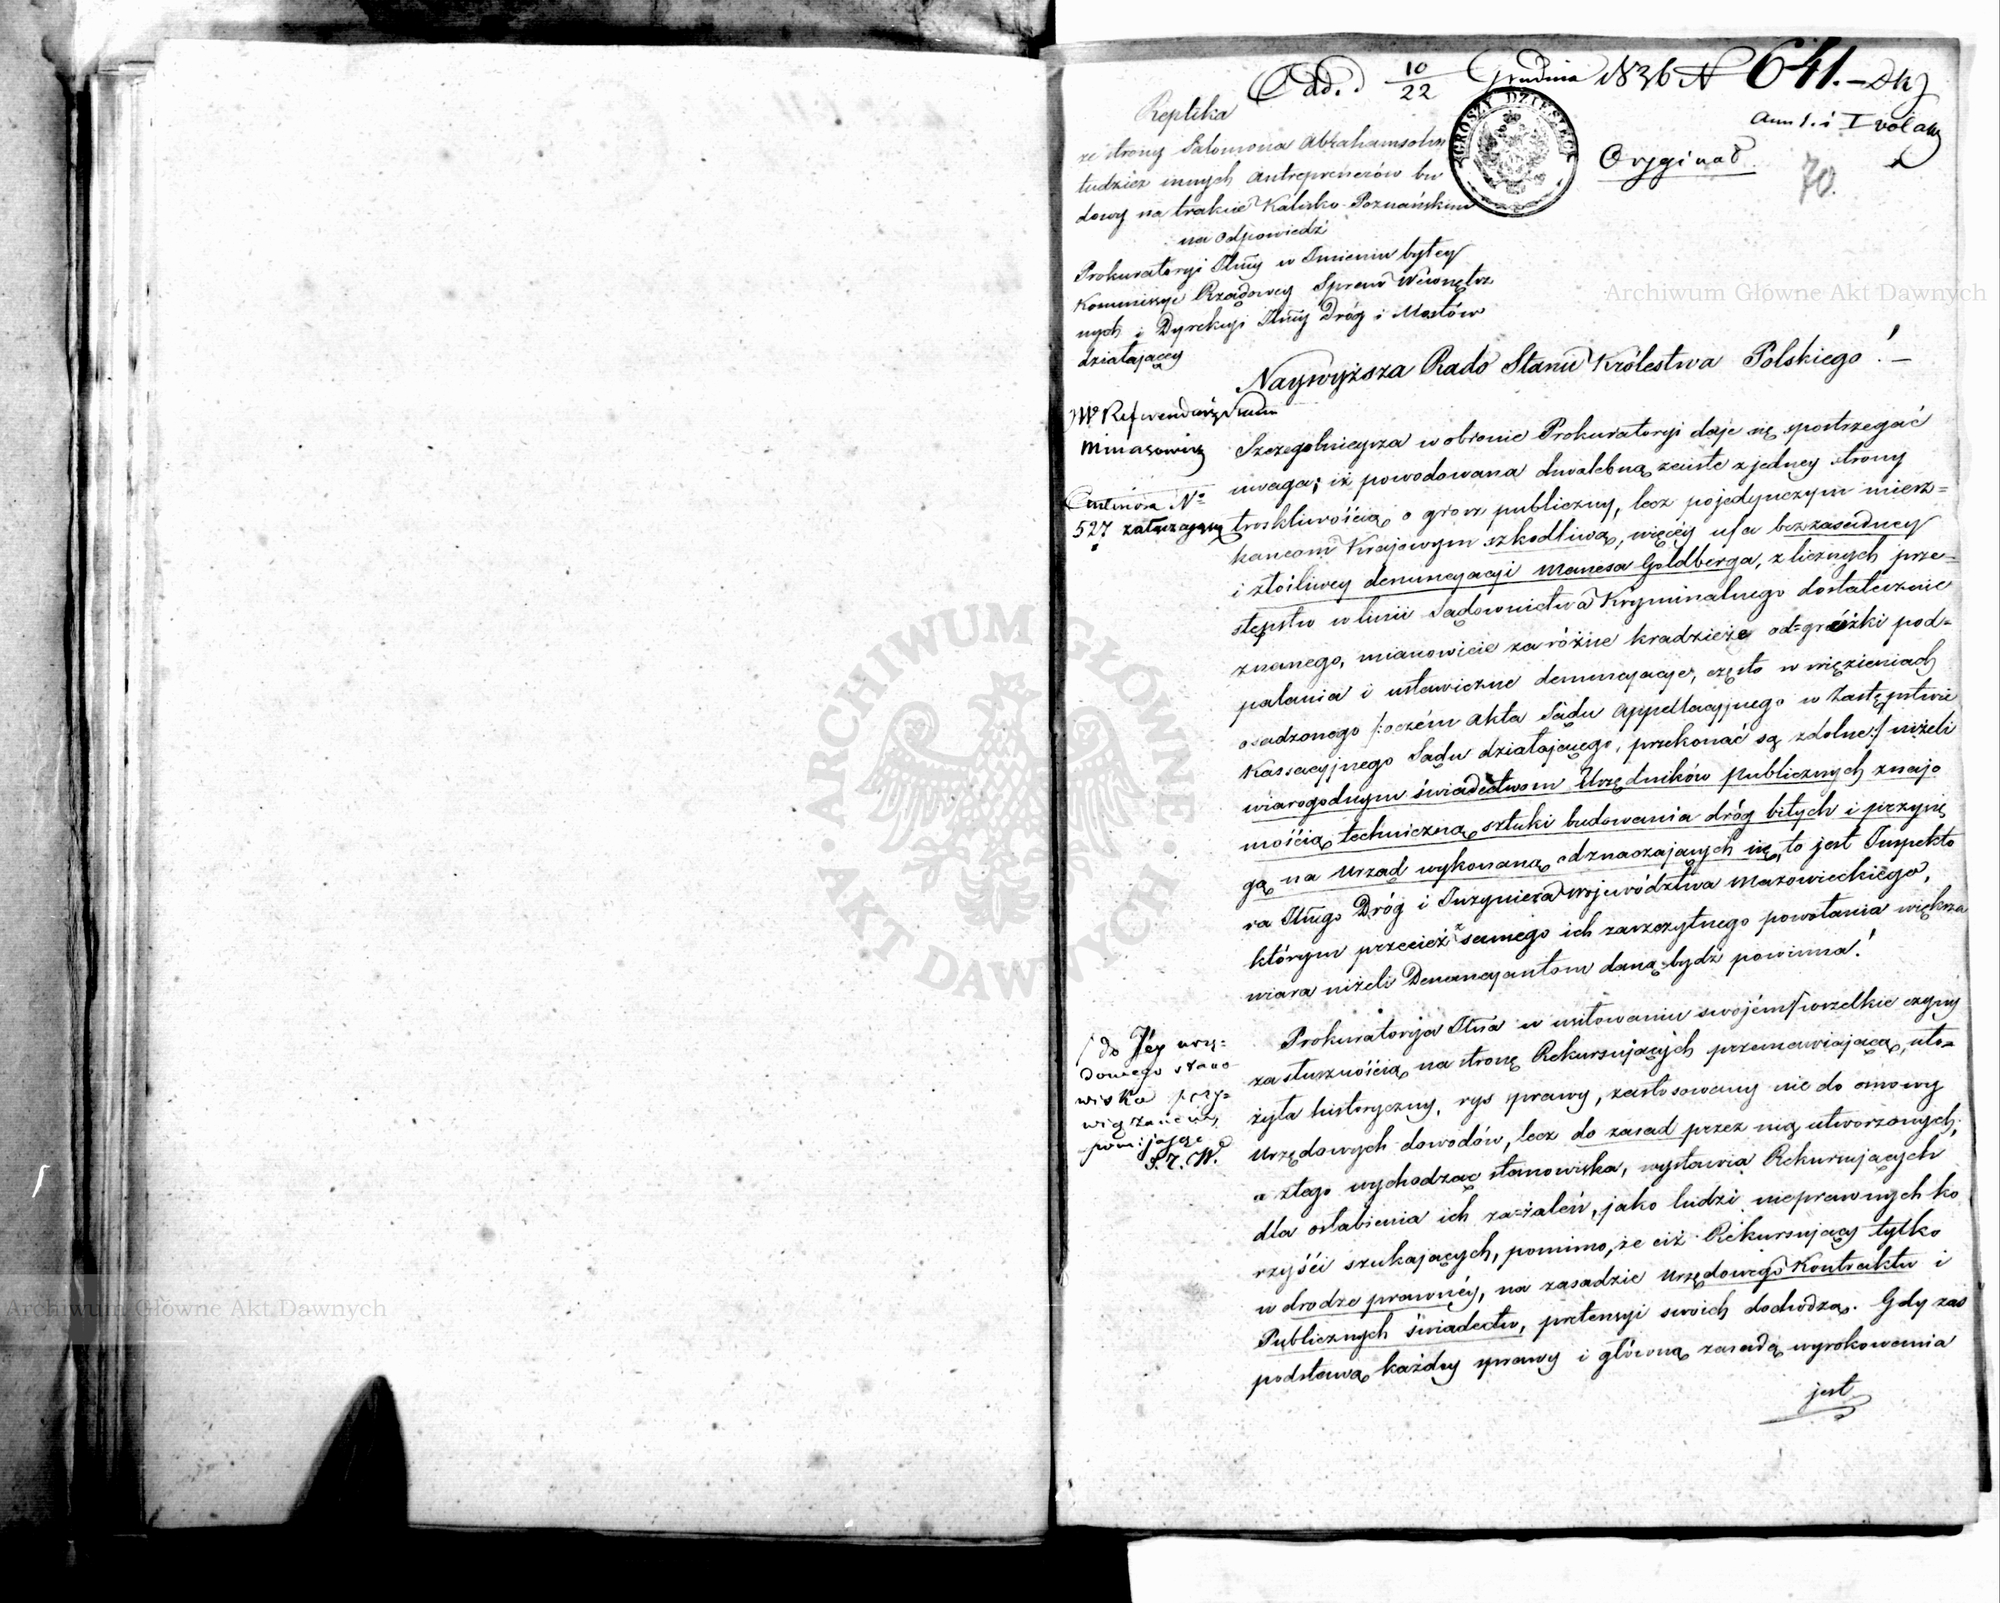 Odd. d 10/22 Grudnia 1836 N 641.
Ann 1. i I vol akt
Oryginał.
70.
GROSZY DZIESIĘĆ
Replika
ze strony Salomona Abrahamsohn
tudzież innych Antreprenerów bu
dowy na trakcie Kalisko-Poznańskim
na odpowiedź
Prokuratoryi Jłney w Imieniu byłey
Kommissyi Rządowey Spraw Wewnętrz
nych i Dyrekcyi Jłney Dróg i Mostów
działającey
Naywyższa Rado Stanu Królestwa Polskiego! —
W Referendarz
Minasowicz
N°
527 załączający
Szczególnieysza w obronie Prokuratoryi daje się spostrzegać
uwaga; iż powodowana chwalebną zaiste z jedney strony
troskliwością o grosz publiczny, lecz pojedynczym miesz=
kańcom Krajowym szkodliwą, więcey ufa bezzasadney
i złośliwey denuncyacyi Manesa Goldberga, z licznych prze=
stępstw w linii Sądownictwa Kryminalnego dostatecznie
znanego, mianowicie za różne kradzieże od=gróżki pod=
palania i ustawiczne denuncyacye, często w więzieniach
osadzonego /:o czém Akta Sądu Appellacyjnego w Zastępstwie
Kassacyjnego Sądu działającego, przekonać są zdolne:/ niżeli
wiarogodnym świadectwom Urzędników publicznych znajo
mością techniczną sztuki budowania dróg bitych i przysię
gą na Urząd wykonaną odznaczających się, to jest Inspekto
ra Jłnego Dróg i Inżyniera Województwa Mazowieckiego,
którym przecież z samego ich zaszczytnego powołania większa
wiara niżeli Denuncyantom daną bydź powinna!
/ do Jey urzę=
dowego stano
wiska przy=
wiązanem,
pomijając
S. Z. W.
Prokuratorya Jłna w usiłowaniu swojém / wszelkie czyny
za słusznością na stronę Rekursujących przemawiające, uło=
żyła historyczny rys sprawy, zastosowany nie do osnowy
Urzędowych dowodów, lecz do zasad przez nią utworzonych;
a z tego wychodząc stanowiska, wystawia Rekursujących
dla osłabienia ich za=żaleń, jako ludzi nieprawnych ko
rzyści szukających, pomimo, że ciż Rekursujący tylko
w drodze prawnéy, na zasadzie Urzędowego Kontraktu i
Publicznych świadectw, pretensyi swoich dochodzą. Gdy zaś
podstawą każdey sprawy i główną zasadą wyrokowania
jest
Archiwum Główne Akt Dawnych
ARCHIWUM GŁÓWNE · AKT DAWNYCH ·
Archiwum Główne Akt Dawnych